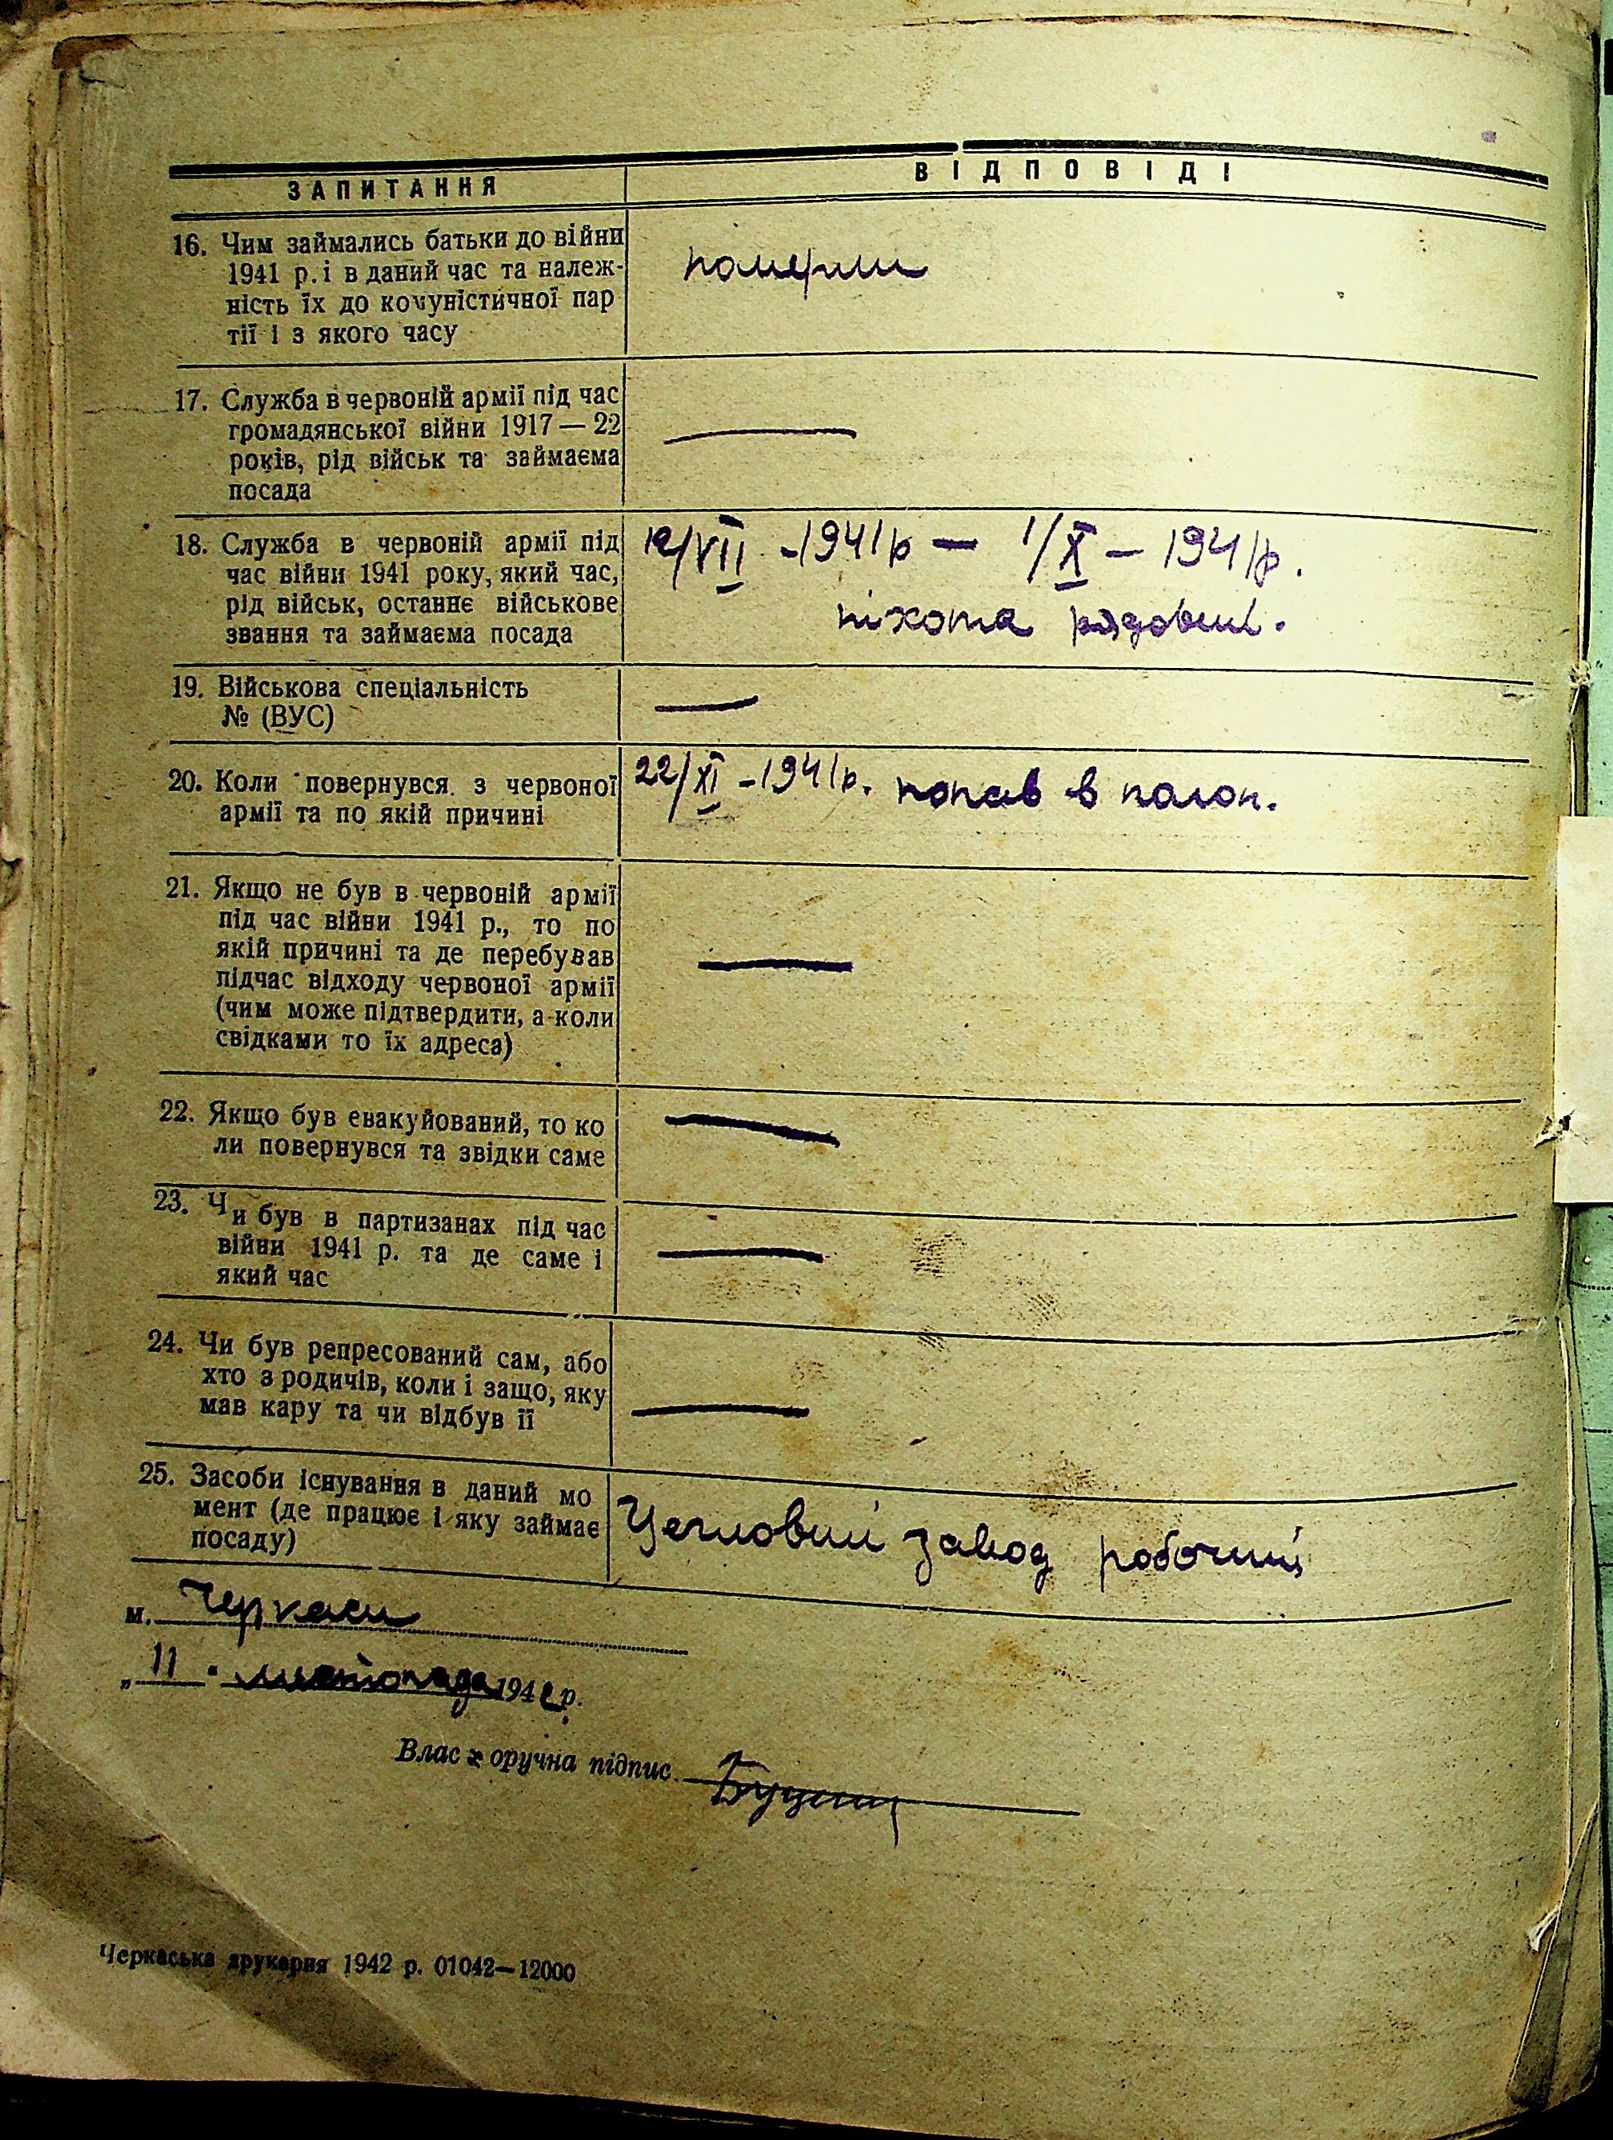 ЗАПИТАННЯ
ВІДПОВІДІ
16. Чим займались батьки до війни
1941 р. і в даний час та належ-
ність їх до комуністичної пар
тії і з якого часу
померли
17. Служба в червоній армії під час
громадянської війни 1917 — 22
років, рід військ та займаєма
посада
—
18. Служба в червоній армії під
час війни 1941 року, який час,
рід військ, останнє військове
звання та займаєма посада
12/VII -1941р — 1/X — 1941р.
піхота рядовий.
19. Військова спеціальність
№ (ВУС)
—
20. Коли повернувся з червоної
армії та по якій причині
22/XI -1941р. попав в полон.
21. Якщо не був в червоній армії
під час війни 1941 р., то по
якій причині та де перебував
підчас відходу червоної армії
(чим може підтвердити, а коли
свідками то їх адреса)
—
22. Якщо був евакуйований, то ко
ли повернувся та звідки саме
—
23. Чи був в партизанах під час
війни 1941 р. та де саме і
який час
—
24. Чи був репресований сам, або
хто з родичів, коли і защо, яку
мав кару та чи відбув її
—
25. Засоби існування в даний мо
мент (де працює і яку займає
посаду)
Цегловий завод робочий
м. Черкаси
„11" листопада 1942 р.
Власноручна підпис.
Черкаська друкарня 1942 р. 01042—12000